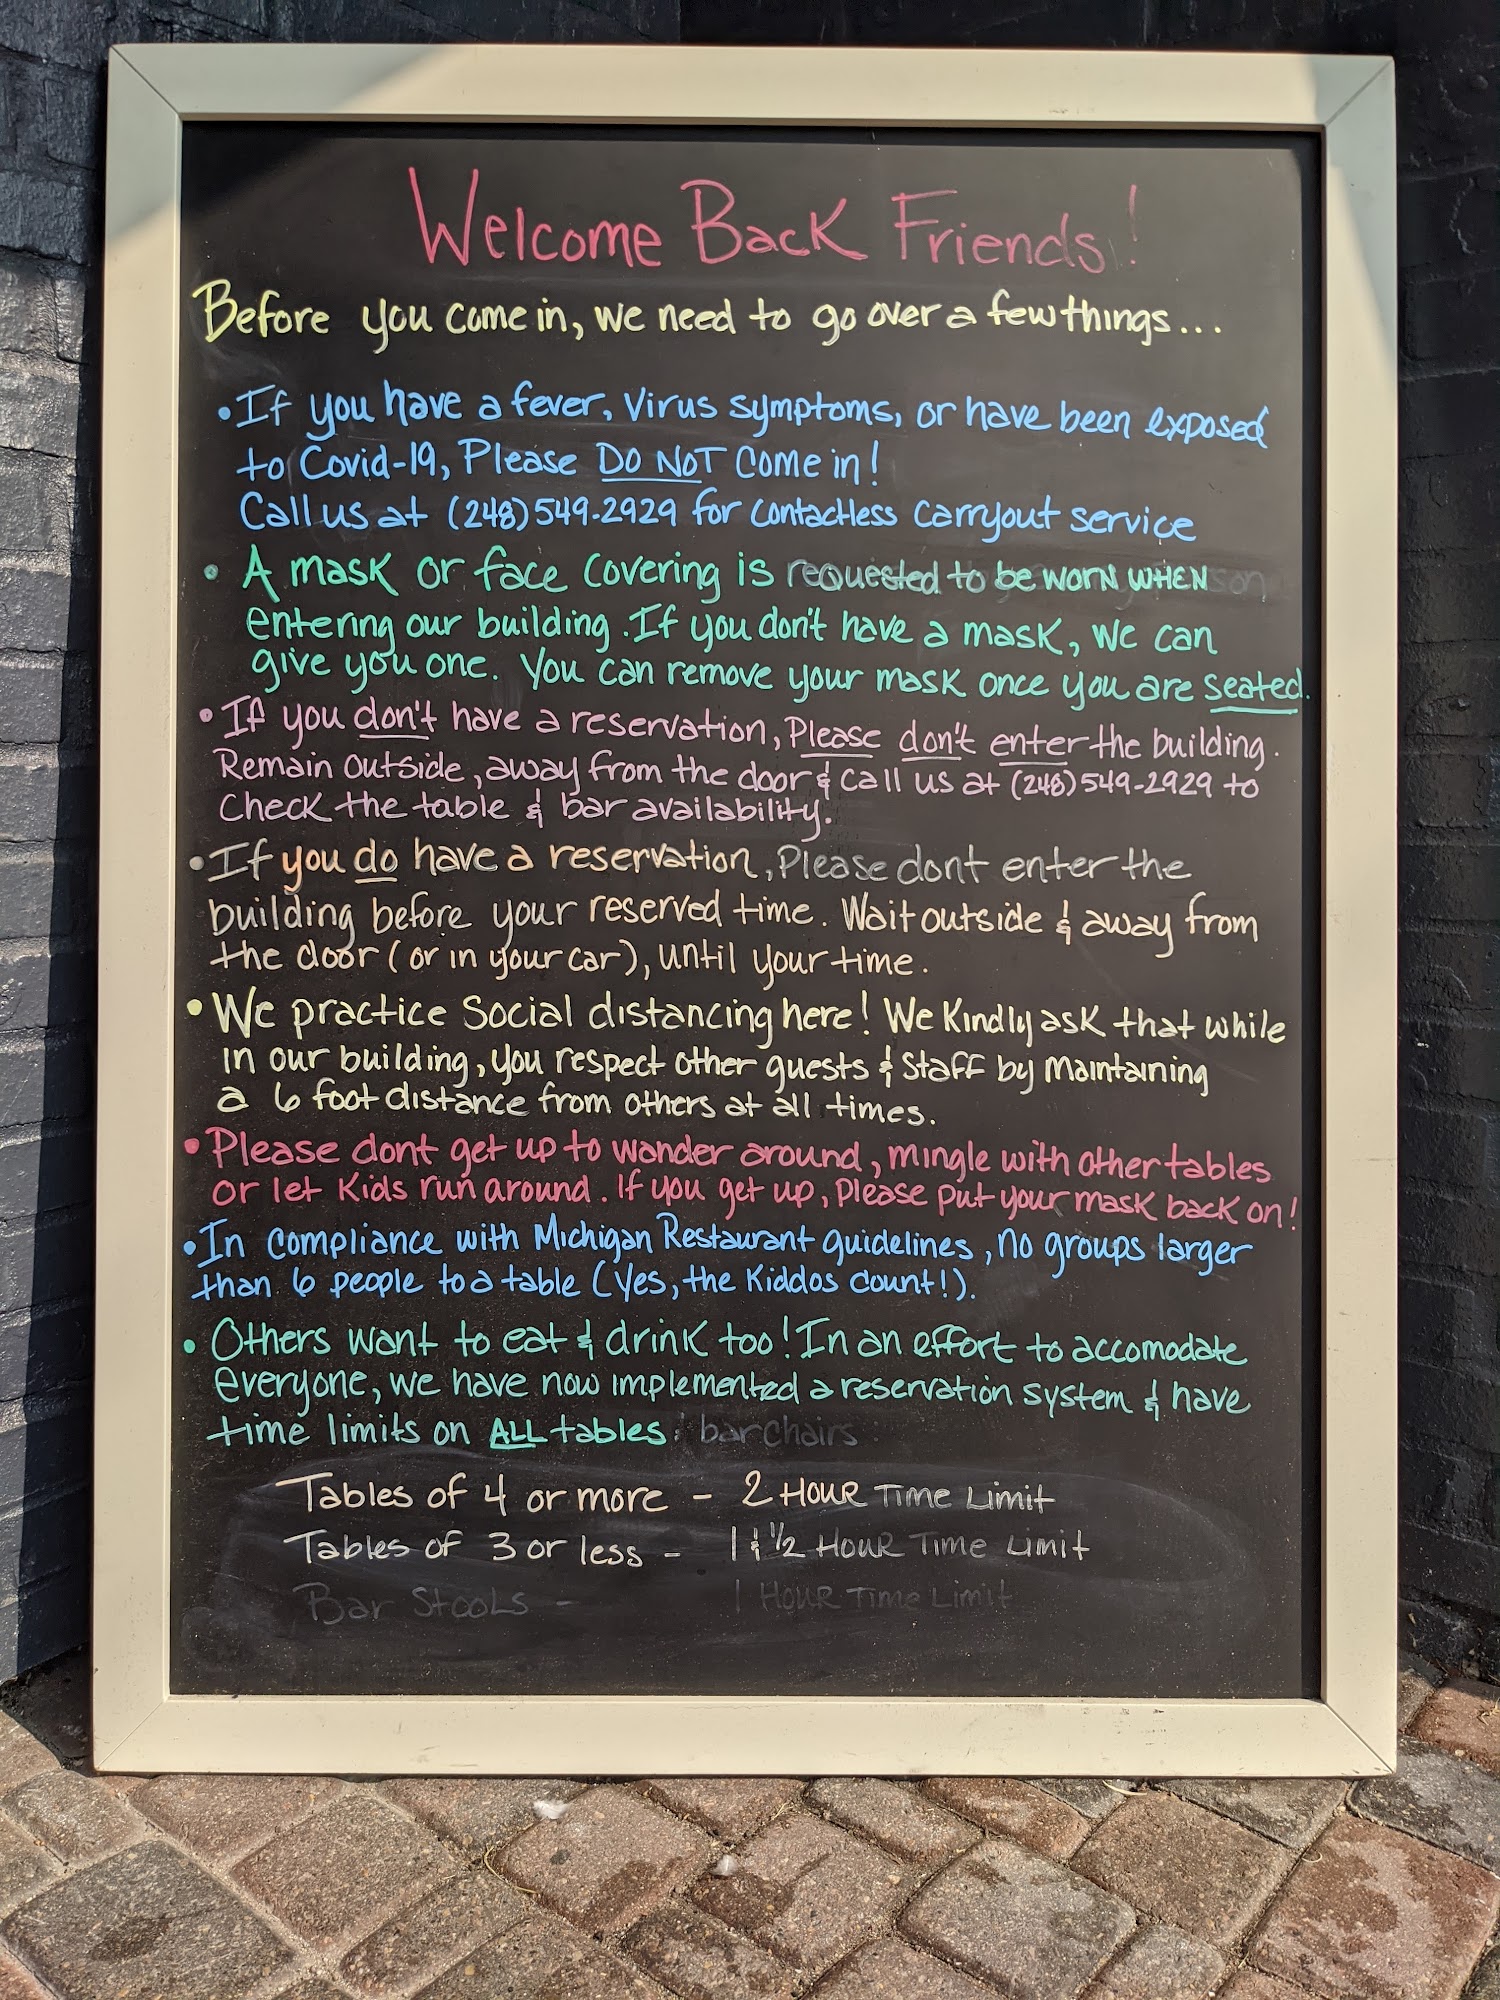 Welcome Back Friends!
Before you come in, we need to go over a few things...
• If you have a fever, Virus symptoms, or have been exposed
to Covid-19, Please DO NOT come in!
Call us at (248) 549-2929 for contactless carryout service
• A mask or face covering is requested to be worn WHEN
entering our building. If you don't have a mask, we can
give you one. You can remove your mask once you are seated.
• If you don't have a reservation, Please don't enter the building.
Remain outside, away from the door & call us at (248) 549-2929 to
Check the table & bar availability.
• If you do have a reservation, Please dont enter the
building before your reserved time. Wait outside & away from
the door (or in your car), until your time.
• We practice Social distancing here! We Kindly ask that while
in our building, you respect other guests & staff by maintaining
a 6 foot distance from others at all times.
• Please dont get up to wander around, mingle with other tables
or let kids run around. If you get up, please put your mask back on!
• In compliance with Michigan Restaurant guidelines, no groups larger
than 6 people to a table (Yes, the Kiddos count!).
• Others want to eat & drink too! In an effort to accomodate
everyone, we have now implemented a reservation system & have
time limits on ALL tables & barchairs:
Tables of 4 or more - 2 Hour Time Limit
Tables of 3 or less - 1 & 1/2 Hour Time Limit
Bar Stools - 1 Hour Time Limit